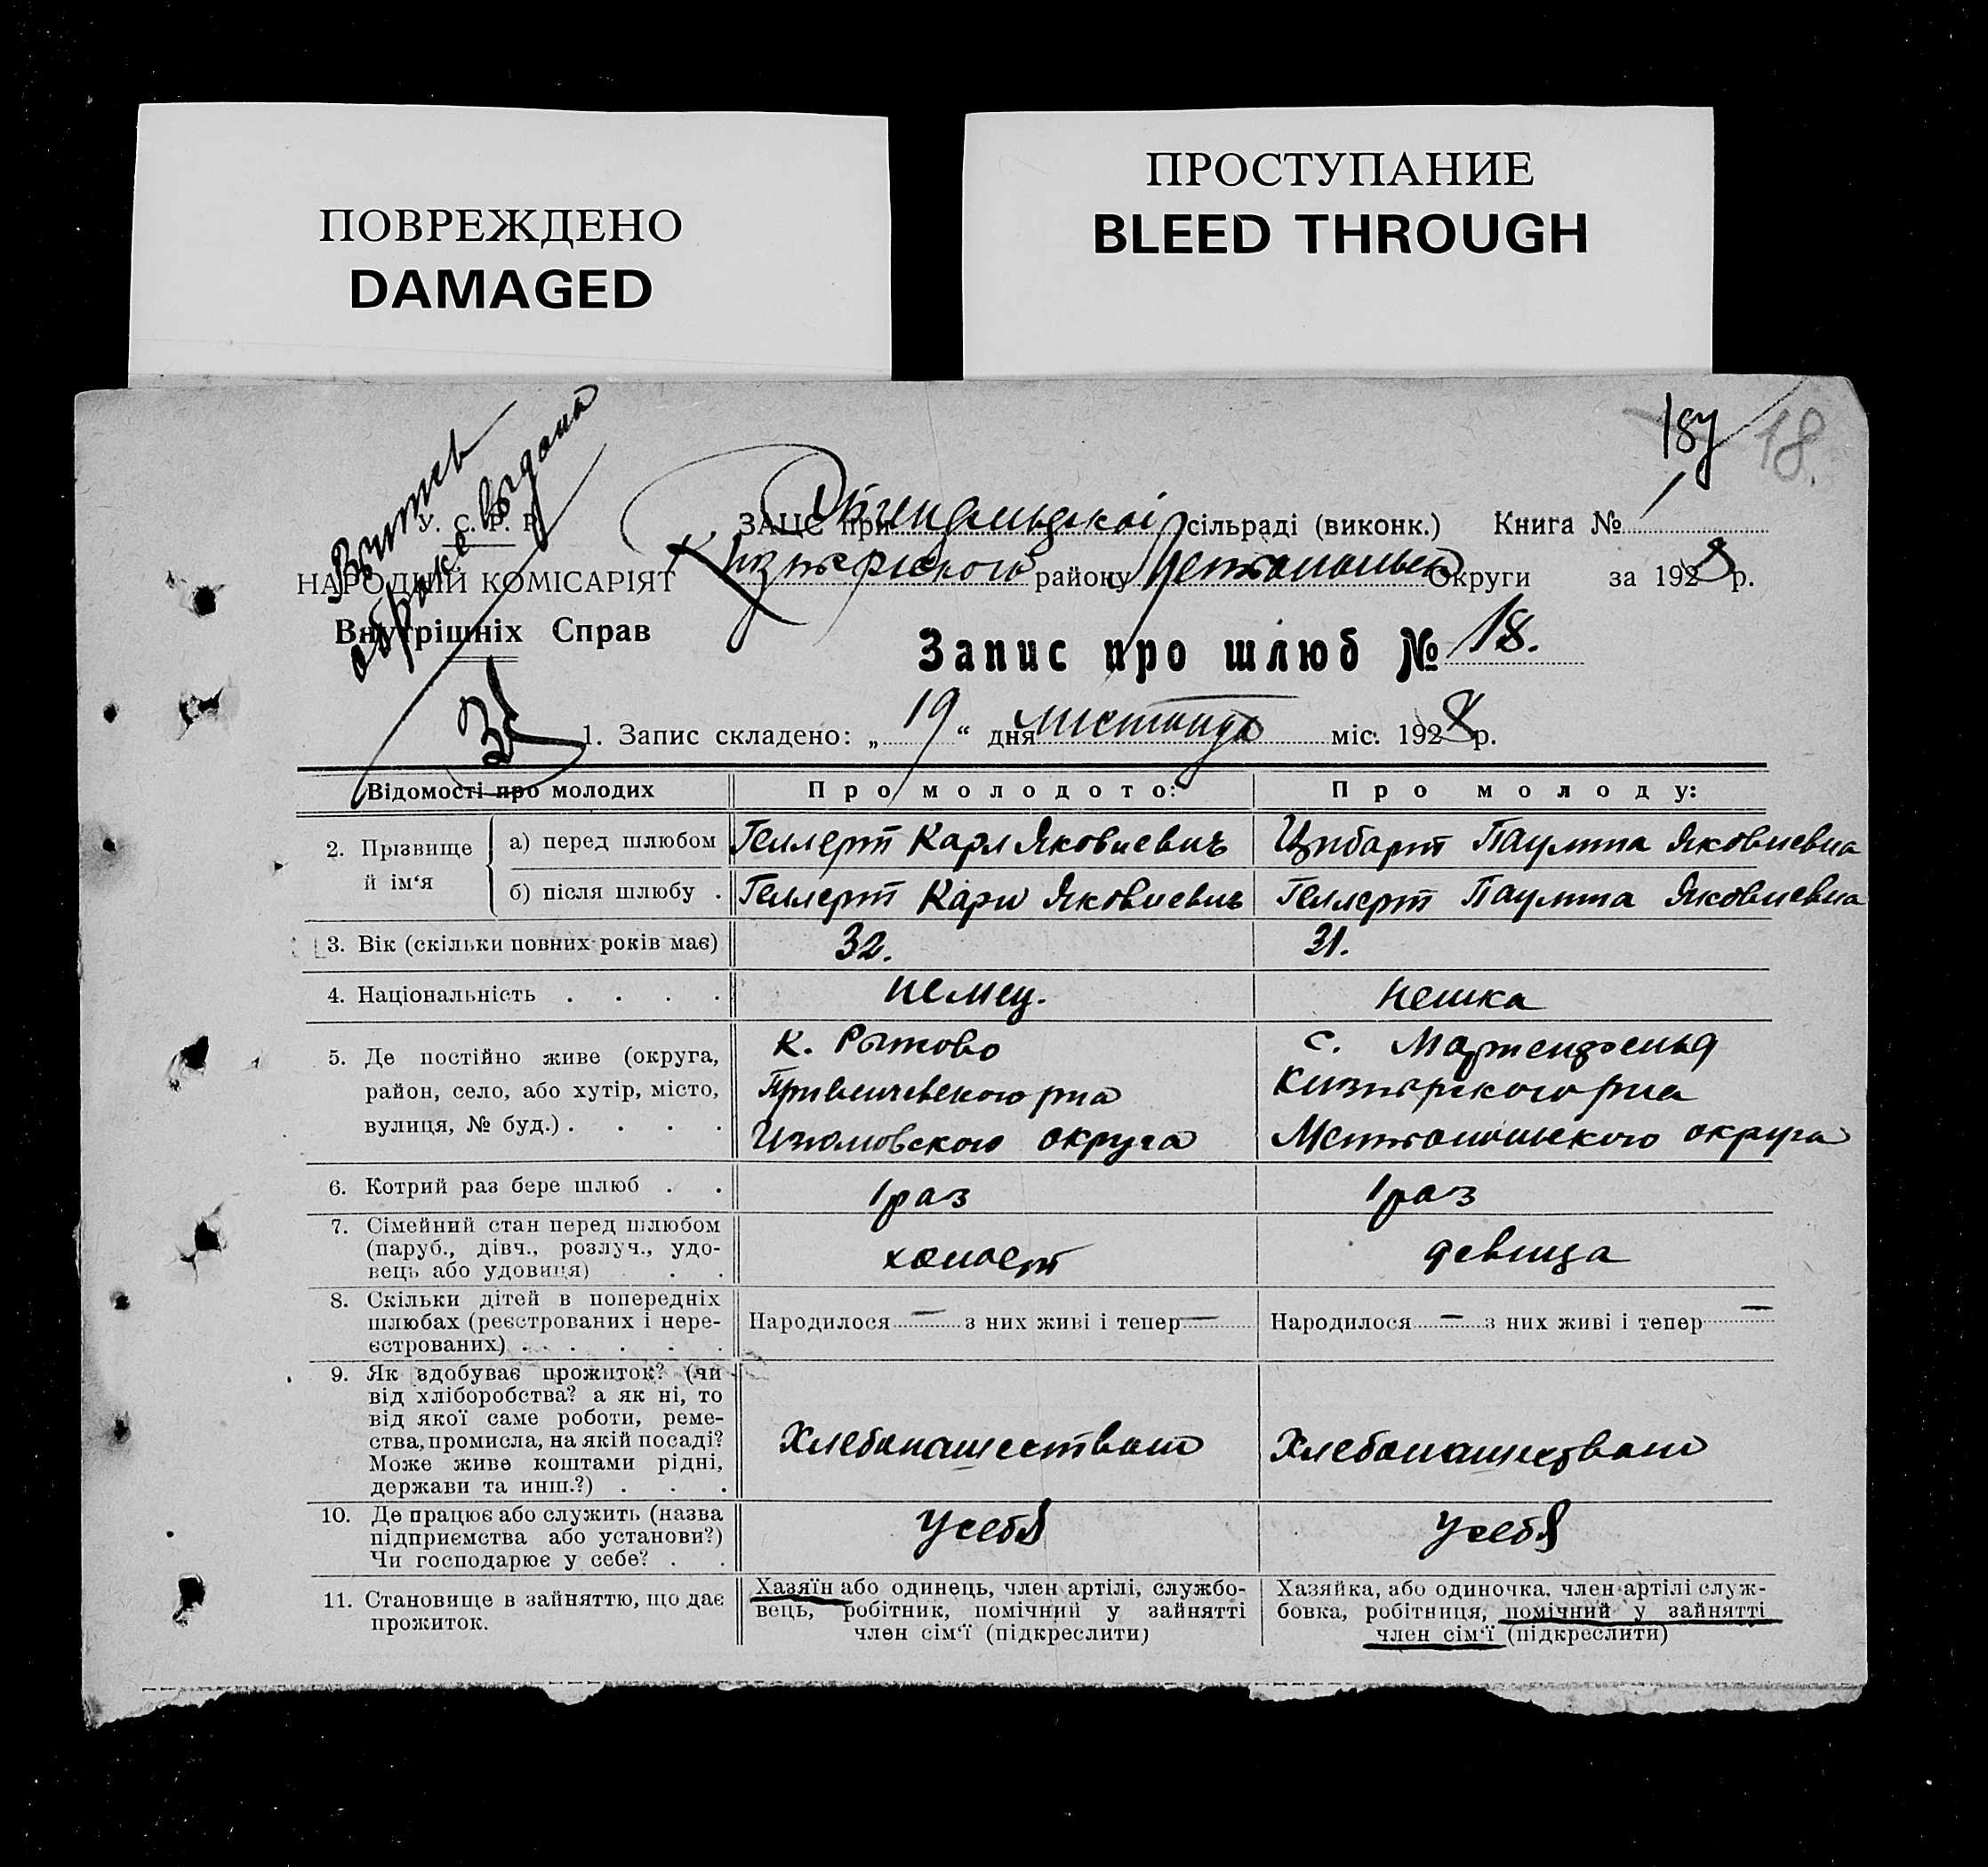 ПОВРЕЖДЕНО
DAMAGED
ПРОСТУПАНИЕ
BLEED THROUGH
18.
У. С. Р. Р.
НАРОДНІЙ КОМІСАРІЯТ
Внутрішніх Справ
ЗАЦС при сільраді (виконк.) Книга № 1
району Округи за 1928 р.
Запис про шлюб № 18.
1. Запис складено: „19“ дня листопада міс. 1928 р.
Відомості про молодих Про молодого: Про молоду:
2. Прізвище й ім‘я
а) перед шлюбом Геллерт Карл Яковлевич Цибарт Паулина Яковлевна
б) після шлюбу . Геллерт Карл Яковлевич Геллерт Паулина Яковлевна
3. Вік (скільки повних років має) 32. 31.
4. Національність . . . . немец. немка
5. Де постійно живе (округа, район, село, або хутір, місто, вулиця, № буд.) . . . .
к. Рытово
района
Изюмовского округа
с.
района
Мелитопольского округа
6. Котрий раз бере шлюб . . 1 раз 1 раз
7. Сімейний стан перед шлюбом (паруб., дівч., розлуч., удовець або удовиця) . . холост девица
8. Скільки дітей в попередніх шлюбах (реєстрованих і нереєстрованих) . . . . . . Народилося — з них живі і тепер — Народилося — з них живі і тепер —
9. Як здобуває прожиток? (чи від хліборобства? а як ні, то від якої саме роботи, ремества, промисла, на якій посаді? Може живе коштами рідні, держави та инш.?) . . . Хлебопашеством Хлебопашеством
10. Де працює або служить (назва підприємства або установи?) Чи господарює у себе? . . У себя У себя
11. Становище в зайняттю, що дає прожиток.
Хазяїн або одинець, член артілі, службовець, робітник, помічний у зайнятті член сім‘ї (підкреслити)
Хазяйка, або одиночка, член артілі службовка, робітниця, помічний у зайнятті член сім‘ї (підкреслити)